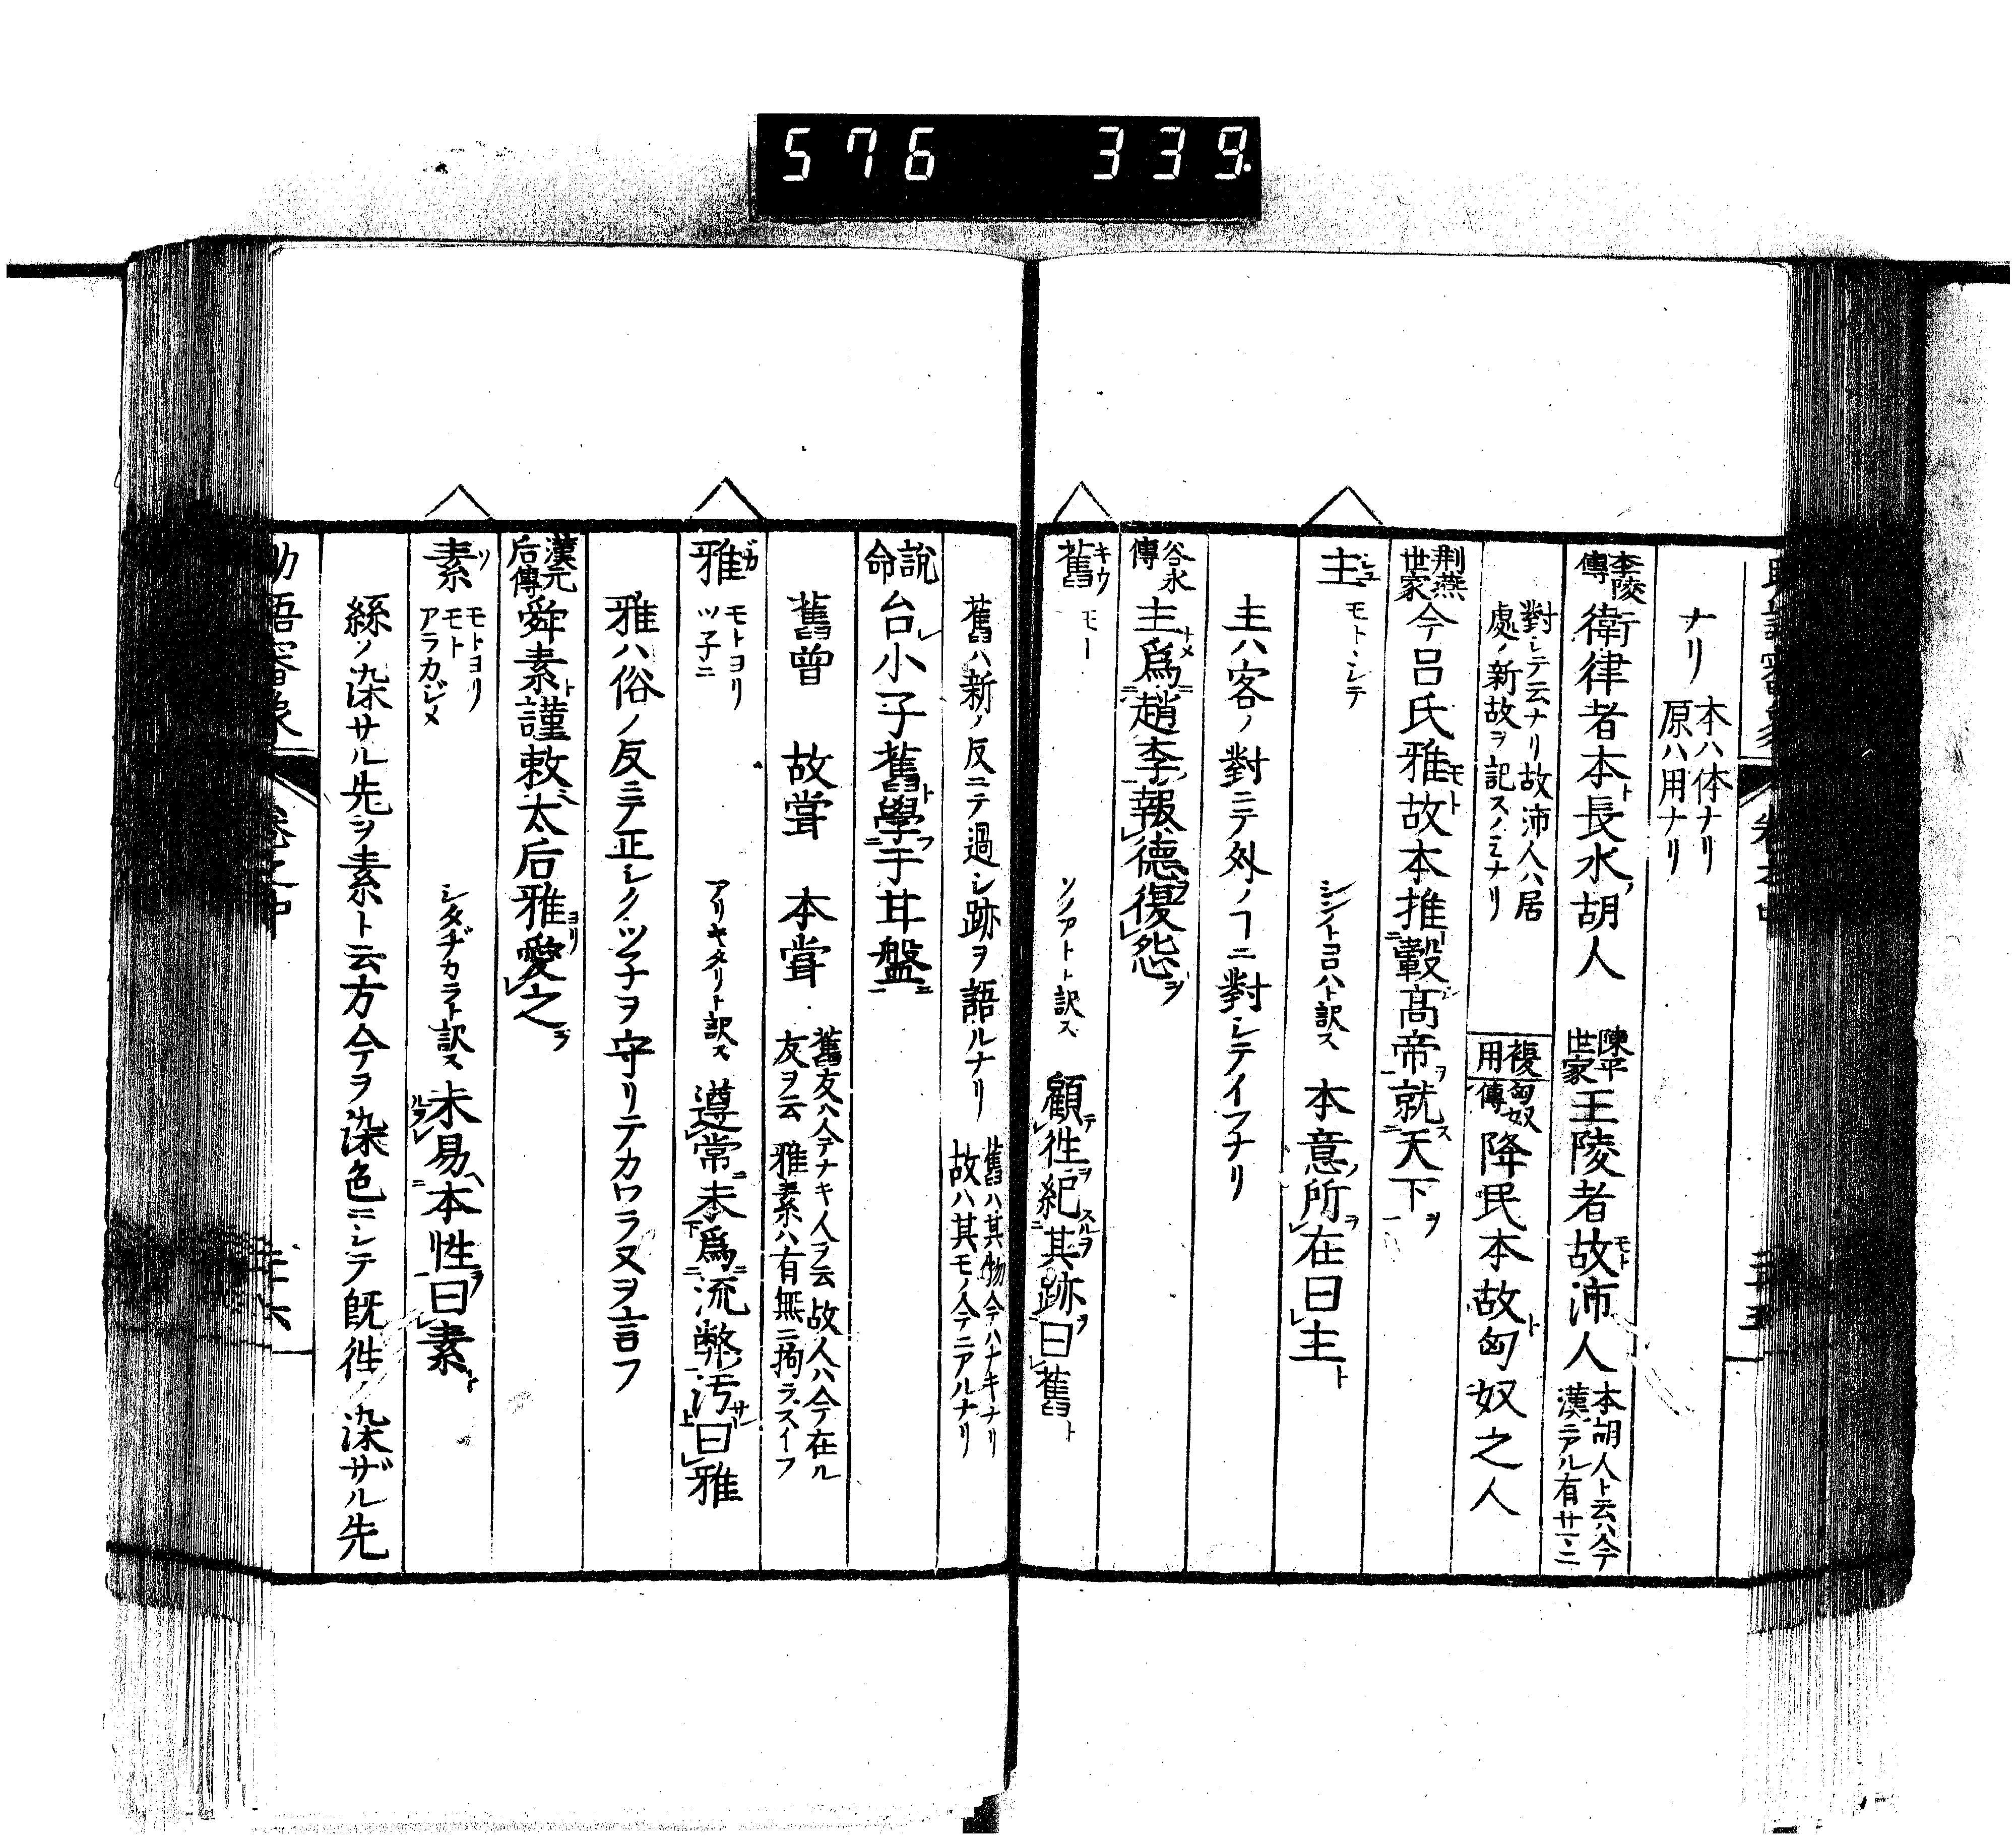 576 339.
ナリ 本ハ体ナリ原ハ用ナリ
李陵傳 衛律者本ト長水ノ胡人 陳平世家 王陵者故モト沛人 本胡人ト云ハ今漢ニアル有サマニ
對シテ云ナリ故沛人ハ居處ノ新故ヲ記スノミナリ 複用 匈奴傳 降民本故ト匈奴之人
荆燕世家 今呂氏雅モト故本推轂高帝ヲ就ス天下ヲ
主シユ モトヽシテ シンイトコロハト訳ス 本意ノ所ヲ在曰主ト
主ハ客ノ對ニテ外ノヿニ對シテイフナリ
谷永傳 主爲ナメニ趙李報德ヲ復怨ヲ
舊キウ モー ソノアトト訳ス 顧テ徃ヲ紀スルヲ其跡ヲ曰舊ト
舊ハ新ノ反ニテ過シ跡ヲ語ルナリ 舊ハ其物今ハナキナリ故ハ其モノ今ニアルナリ
説命 台小子舊ト學フ于甘盤ニ
舊曾 故甞 本甞 舊友ハ今テナキ人ヲ云故人ハ今在ル友ヲ云 雅素ハ有無ニ拘ラズイフ
雅ガ モトヨリ ツ子ニ アリキタリト訳ス 遵常ニ未爲ニ流弊ノ汚サレ曰雅
雅ハ俗ノ反ニテ正シクツ子ヲ守リテカワラヌヲ言フ
漢元后傳 舜素ト謹敕ニ太后雅ヨリ愛之ヲ
素ソ モトヨリ モト アラカジメ シタヂカラト訳ス 未易ヘ本性ヲ曰素ト
絲ノ染サル先ヲ素ト云方今テヲ染色ニシテ既徃ノ染ザル先
助語審象 卷之中 三十六